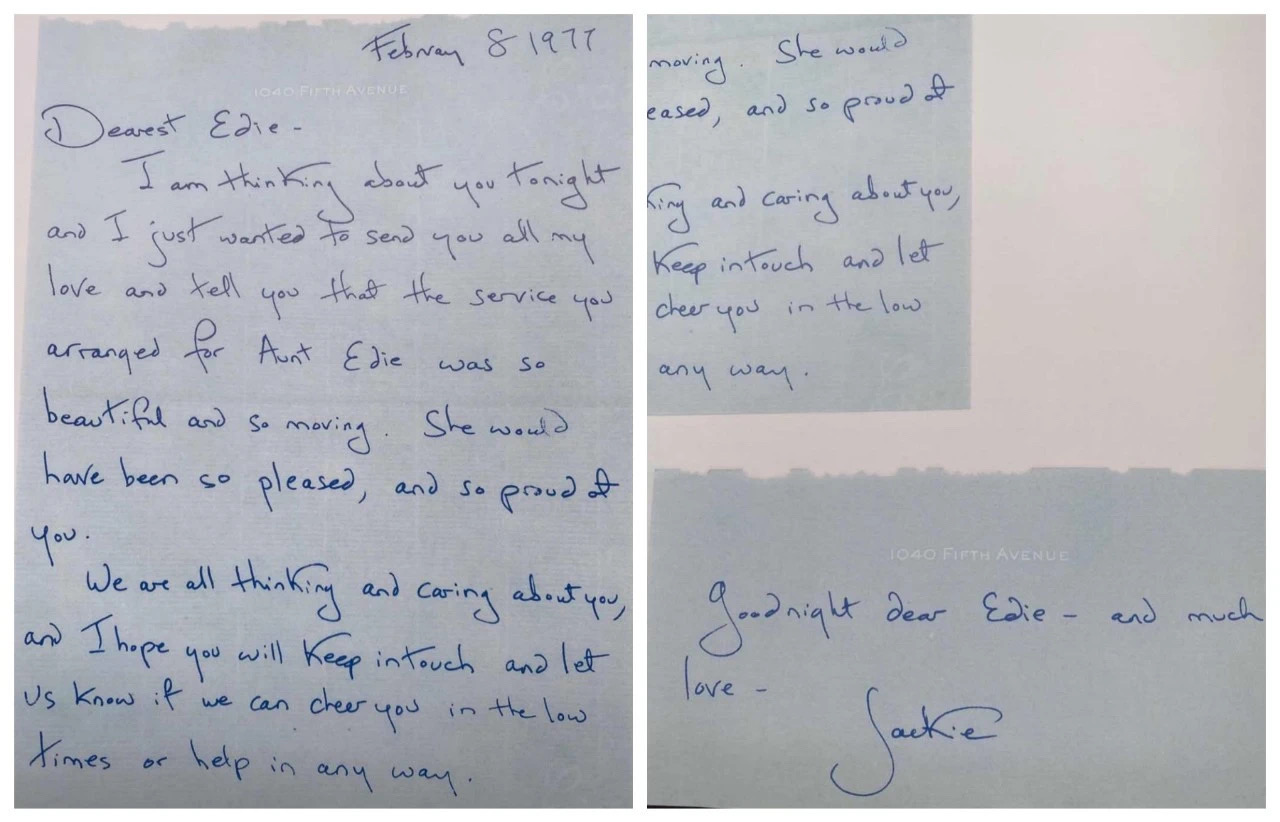 February 8 1977
1040 FIFTH AVENUE
Dearest Edie -
I am thinking about you tonight
and I just wanted to send you all my
love and tell you that the service you
arranged for Aunt Edie was so
beautiful and so moving. She would
have been so pleased, and so proud of
you.
We are all thinking and caring about you,
and I hope you will keep in touch and let
us know if we can cheer you in the low
times or help in any way.
moving. She would
eased, and so proud of
king and caring about you,
keep in touch and let
cheer you in the low
any way.
1040 FIFTH AVENUE
Goodnight dear Edie - and much
love -
Jackie